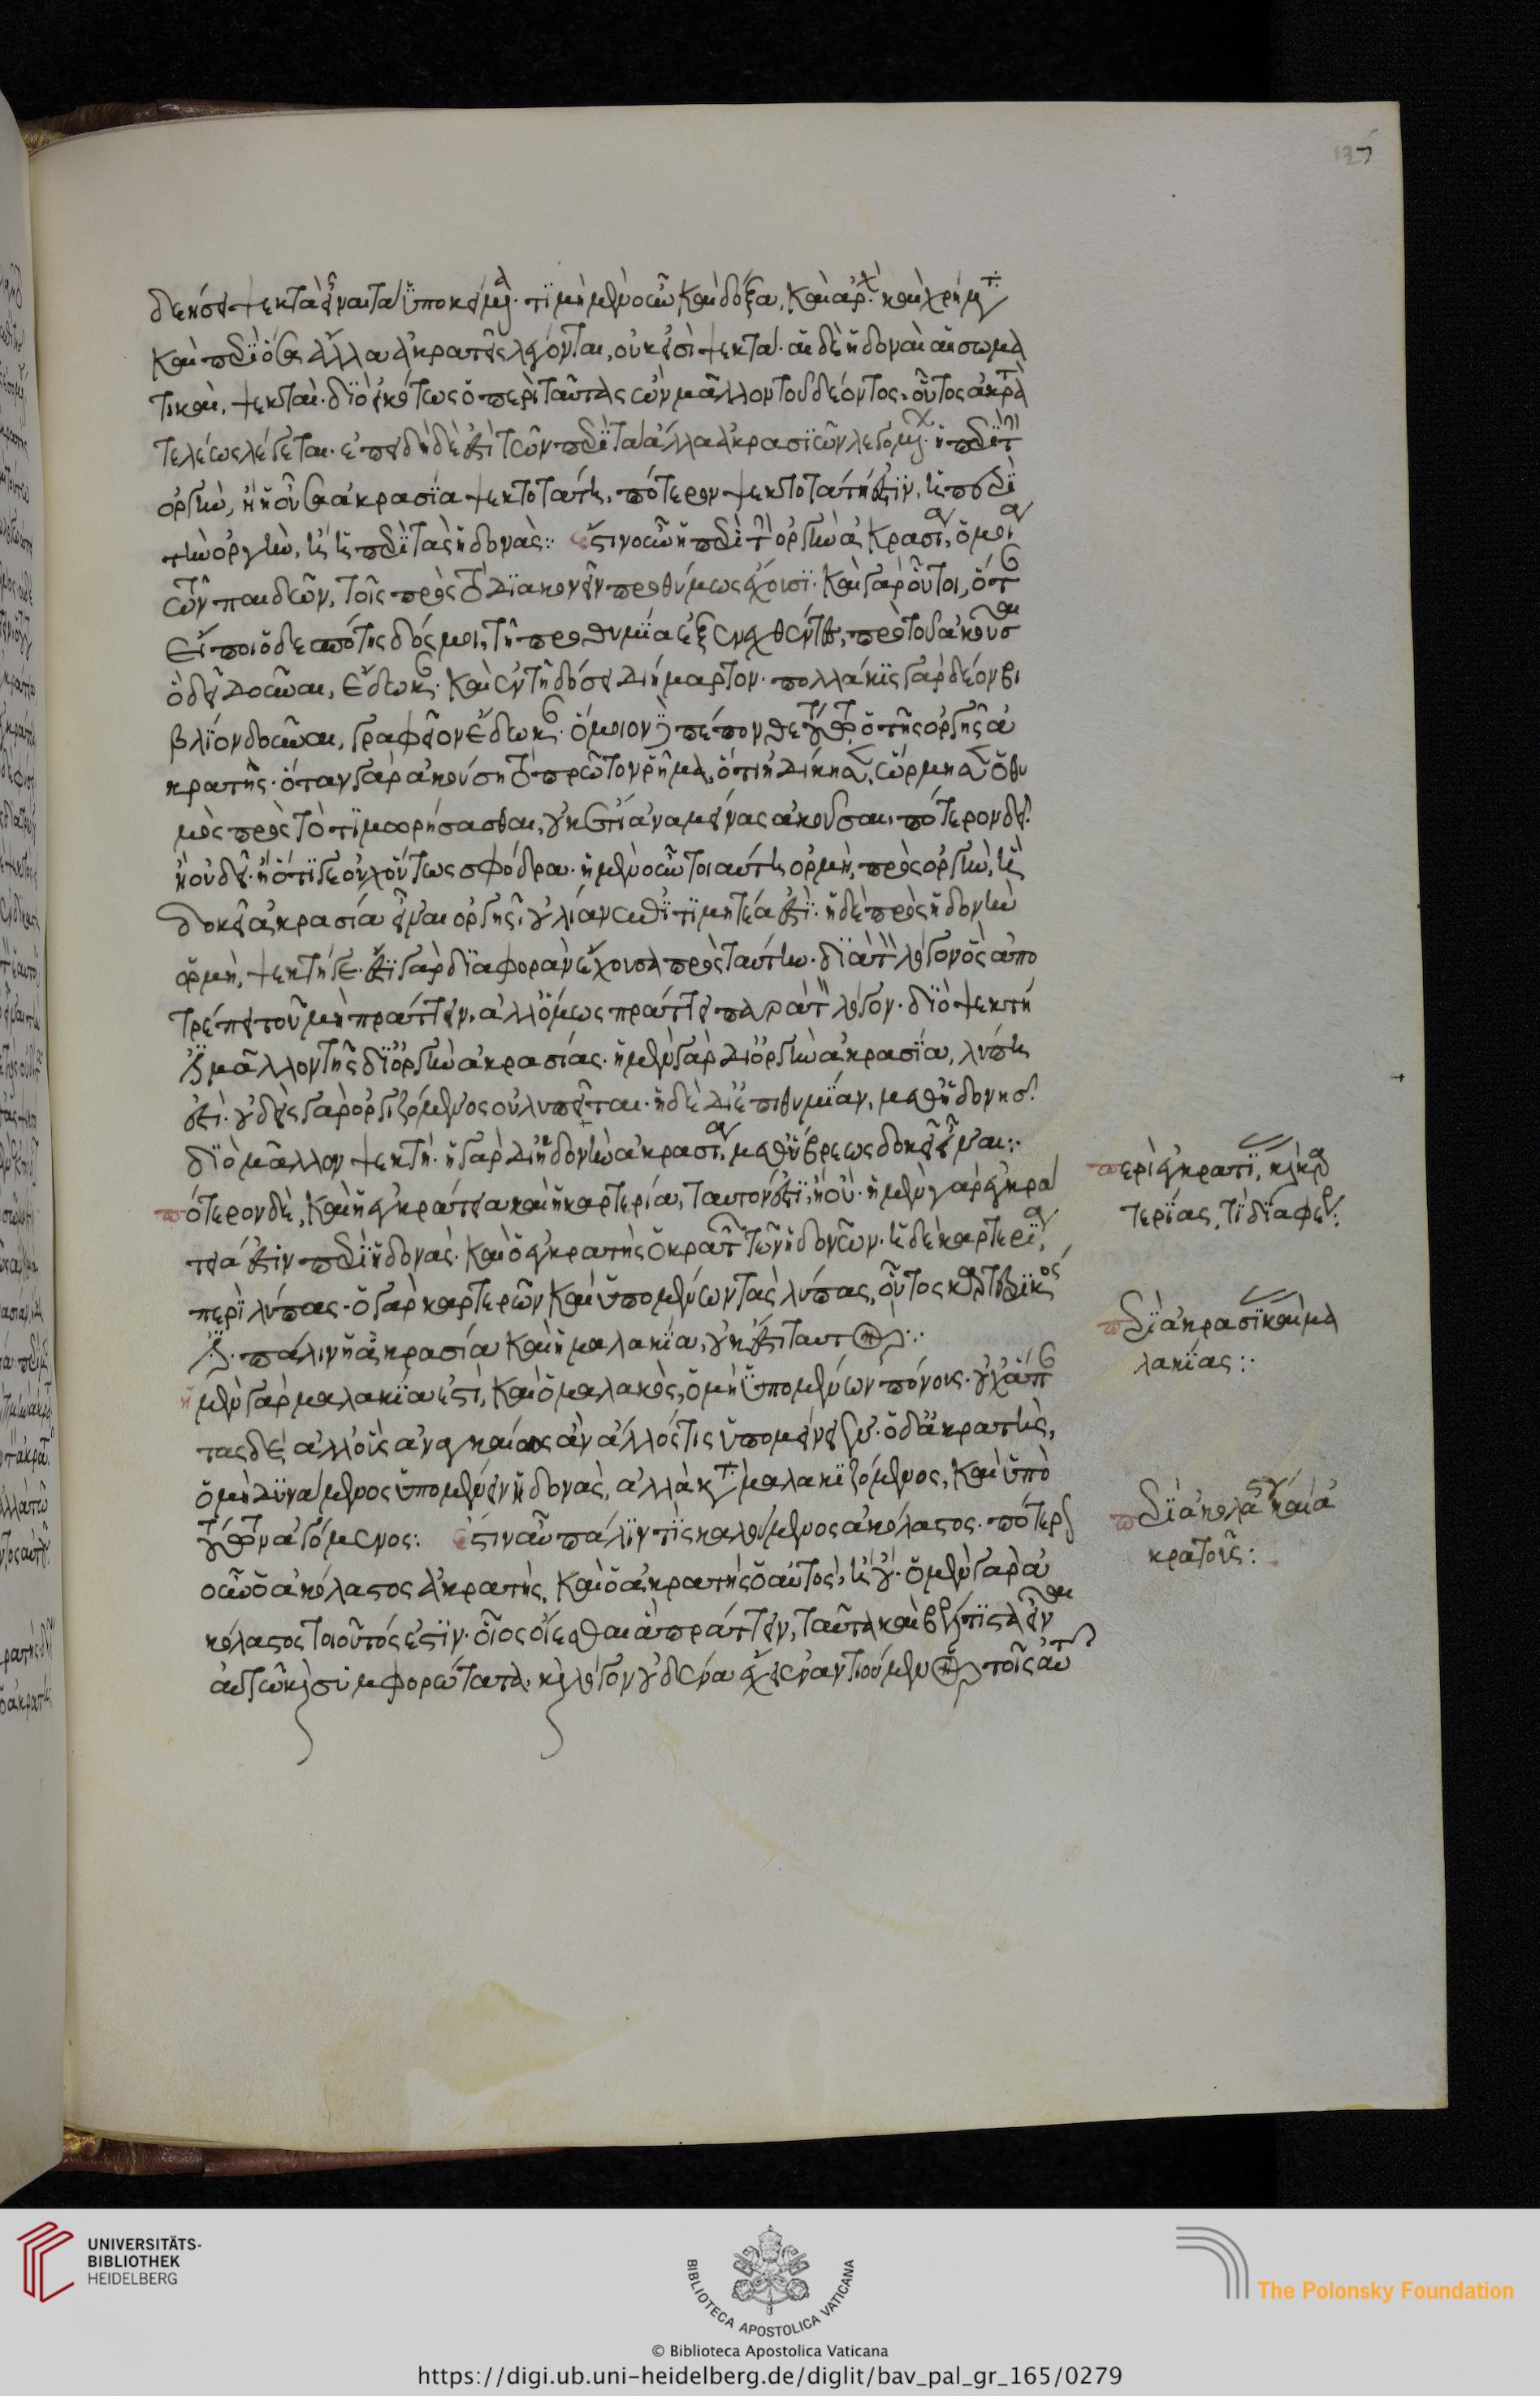 δεήσει ψεκτὰ εἶναι τὰ ὑποκείμενα. τιμὴ μὲν οὖν καὶ δόξα, καὶ ἀρχὴ. καὶ χρήματα
καὶ περὶ ὅσα ἄλλα ἀκρατεῖς λέγονται, οὐκ εἰσὶ ψεκτά. αἱ δὲ ἡδοναὶ αἱ σωμα
τικαὶ, ψεκταί. διὸ εἰκότως ὁ περὶ ταύτας ὢν μᾶλλον τοῦ δέοντος. οὗτος ἀκρατὴς
τελέως λέγεται. ἐπειδὴ δὲ ἐστὶ τῶν περὶ τὰ ἄλλα ἀκρασιῶν λεγομένων. ἡ περὶ τὴν
ὀργὴν, ἡ οὖσα ἀκρασία ψεκτοτάτη, πότερον ψεκτοτάτη ἐστὶν, ἡ περὶ
τὴν ὀργὴν, ἢ ἡ περὶ τὰς ἡδονάς:: ἔστιν οὖν ἡ περὶ τὴν ὀργὴν ἀκρασία, ὁμοία
τῶν παίδων, τοῖς πρὸς τὸ διακονεῖν προθύμως ἔχουσι. καὶ γὰρ οὗτοι, ὅταν
εἴποι ὁ δεσπότης δός μοι, τῇ προθυμία ἐξενεχθέντες, πρὸ τοῦ ἀκοῦσαι
ὃ δεῖ δοῦναι, ἔδωκαν. καὶ ἐν τῇ δόσει διήμαρτον. πολλάκις γὰρ δέον βι
βλίον δοῦναι, γραφεῖον ἔδωκαν. ὅμοιον δὲ πέπονθε τούτῳ ὁ τῆς ὀργῆς ἀ
κρατής. ὅταν γὰρ ἀκούσῃ τὸ πρῶτον ῥῆμα, ὅτι ἠδίκησεν, ὥρμησεν ὁ θυ
μὸς πρὸς τὸ τιμωρήσασθαι, οὐκέτι ἀναμείνας ἀκοῦσαι, πότερον δεῖ
ἢ οὐ δεῖ. ἢ ὅτι γε οὐχ οὕτως σφόδρα. ἡ μὲν οὖν τοιαύτη ὁρμὴ, πρὸς ὀργὴν, ἣ
δοκεῖ ἀκρασία εἶναι ὀργῆς, οὐ λίαν ἐπιτιμητέα ἐστί. ἡ δὲ πρὸς ἡδονὴν
ὁρμὴ, ψεκτή γε. ἔστι γὰρ διαφορὰν ἔχουσα πρὸς ταύτην. διὰ τὸν λόγον ὃς ἀπο
τρέπει τοῦ μὴ πράττειν. ἀλλ' ὅμως πράττει παρὰ τὸν λόγον. διὸ ψεκτή
ἐστι μᾶλλον τῆς δι' ὀργὴν ἀκρασίας. ἡ μὲν γὰρ δι' ὀργὴν ἀκρασία, λύπη
ἐστί. οὐδεὶς γὰρ ὀργιζόμενος οὐ λυπεῖται. ἡ δὲ δι' ἐπιθυμίαν, μεθ' ἡδονῆς.
διὸ μᾶλλον ψεκτή. ἡ γὰρ δι' ἡδονὴν ἀκρασία, μεθ' ὕβρεως δοκεῖ εἶναι::
πότερον δὲ, καὶ ἡ ἐγκράτεια καὶ ἡ καρτερία, ταυτόν ἐστι, ἢ οὔ. ἡ μὲν γὰρ ἐγκρά
τεια ἐστὶν περὶ ἡδονάς. καὶ ὁ ἐγκρατὴς ὁ κρατῶν τῶν ἡδονῶν. ἡ δὲ καρτερία,
περὶ λύπας. ὁ γὰρ καρτερῶν καὶ ὑπομένων τὰς λύπας, οὗτος καρτερικός
ἐστι. πάλιν ἡ ἀκρασία καὶ ἡ μαλακία, οὐκ ἔστι ταυτόν::
ἡ μὲν γὰρ μαλακία ἐστὶ, καὶ ὁ μαλακὸς, ὁ μὴ ὑπομένων πόνους. οὐχ ἅπαν
τας δὲ ἀλλ' οἷς ἀναγκαίως ἂν ἄλλός τις ὑπομείνειεν. ὁ δ' ἀκρατὴς,
ὁ μὴ δυνάμενος ὑπομένειν ἡδονὰς, ἀλλὰ καταμαλακιζόμενος, καὶ ὑπὸ
τούτων ἀγόμενος: ἔστιν αὖ πάλιν τις καλούμενος ἀκόλαστος. πότερον
οὖν ὁ ἀκόλαστος ἀκρατὴς, καὶ ὁ ἀκρατὴς ὁ αὐτὸς, ἢ οὔ. ὁ μὲν γὰρ ἀ
κόλαστος τοιοῦτός ἐστιν. οἷος οἴεσθαι ἃ πράττει, ταῦτα καὶ βέλτιστα εἶναι
αὑτῷ καὶ συμφορώτατα. καὶ λόγον οὐδένα ἔχειν ἐναντιούμενον τοῖς αὐτῷ
περὶ ἐγκρατείας, καὶ καρ
τερίας, τί διαφέρει:
περὶ ἀκρασίας καὶ μα
λακίας::
περὶ ἀκολάστου καὶ ἀ
κρατοῦς:
UNIVERSITÄTS-
BIBLIOTHEK
HEIDELBERG
BIBLIOTECA APOSTOLICA VATICANA
The Polonsky Foundation
© Biblioteca Apostolica Vaticana
https://digi.ub.uni-heidelberg.de/diglit/bav_pal_gr_165/0279